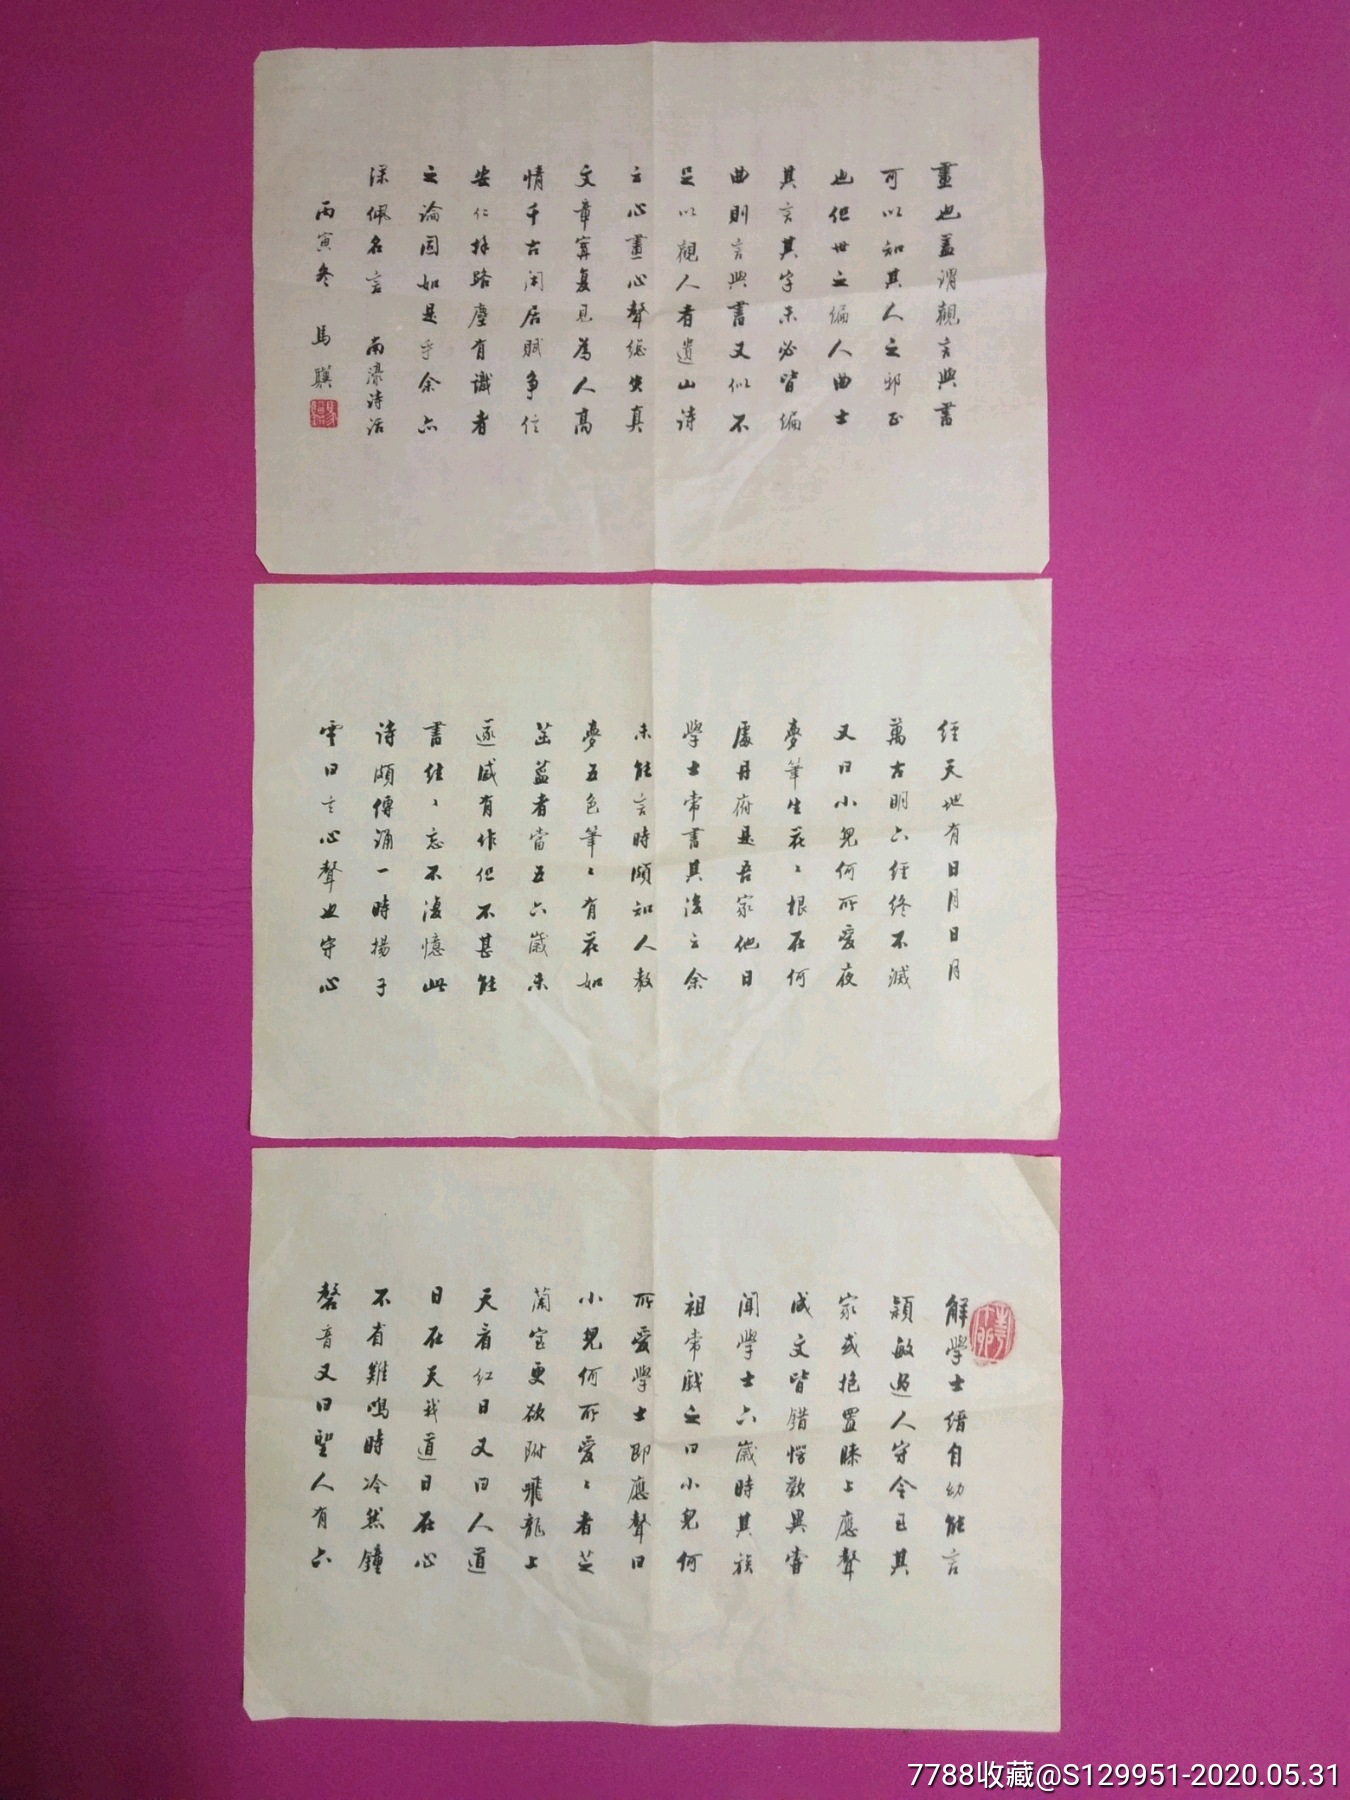 解學士縉自幼能言
穎敏過人守令其
家或抱置膝上應聲
成文皆錯愕歎異嘗
聞學士六歲時其族
祖常戲之曰小兒何
所愛學士即應聲曰
小兒何所愛〻者芝
蘭室更欲附飛龍上
天看紅日又曰人道
日在天我道日在心
不省雞鳴時冷然鐘
磬音又曰聖人有六
經天地有日月日月
萬古明六經終不滅
又曰小兒何所愛夜
夢筆生花〻根在何
處丹府是吾家他日
學士常書其後云余
未能言時頗知人教
夢五色筆〻有花如
菡萏者當五六歲來
遂盛有作但不甚能
書往〻忘不復憶此
詩頗傳誦一時揚子
雲曰言心聲也字心
畫也蓋謂觀言與書
可以知其人之邪正
也但世之偏人曲士
其言其字未必皆偏
曲則言與書又似不
足以觀人者遺山詩
云心畫心聲總失真
文章寧復見為人高
情千古閑居賦爭信
安仁拜路塵有識者
之論固如是乎余亦
深佩名言 南濠詩話
丙寅冬 馬騏
7788收藏@S129951-2020.05.31